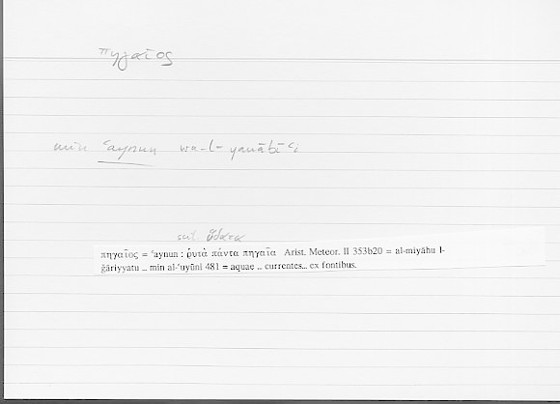 πηγαῖος
min ʿaynun wa-l-yanābīʿi
scil. ὕδατα
πηγαῖος = ʿaynun : ῥυτὰ πάντα πηγαῖα Arist. Meteor. II 353b20 = al-miyāhu l-
ǧāriyyatu .. min al-ʿuyūni 481 = aquae .. currentes.. ex fontibus.